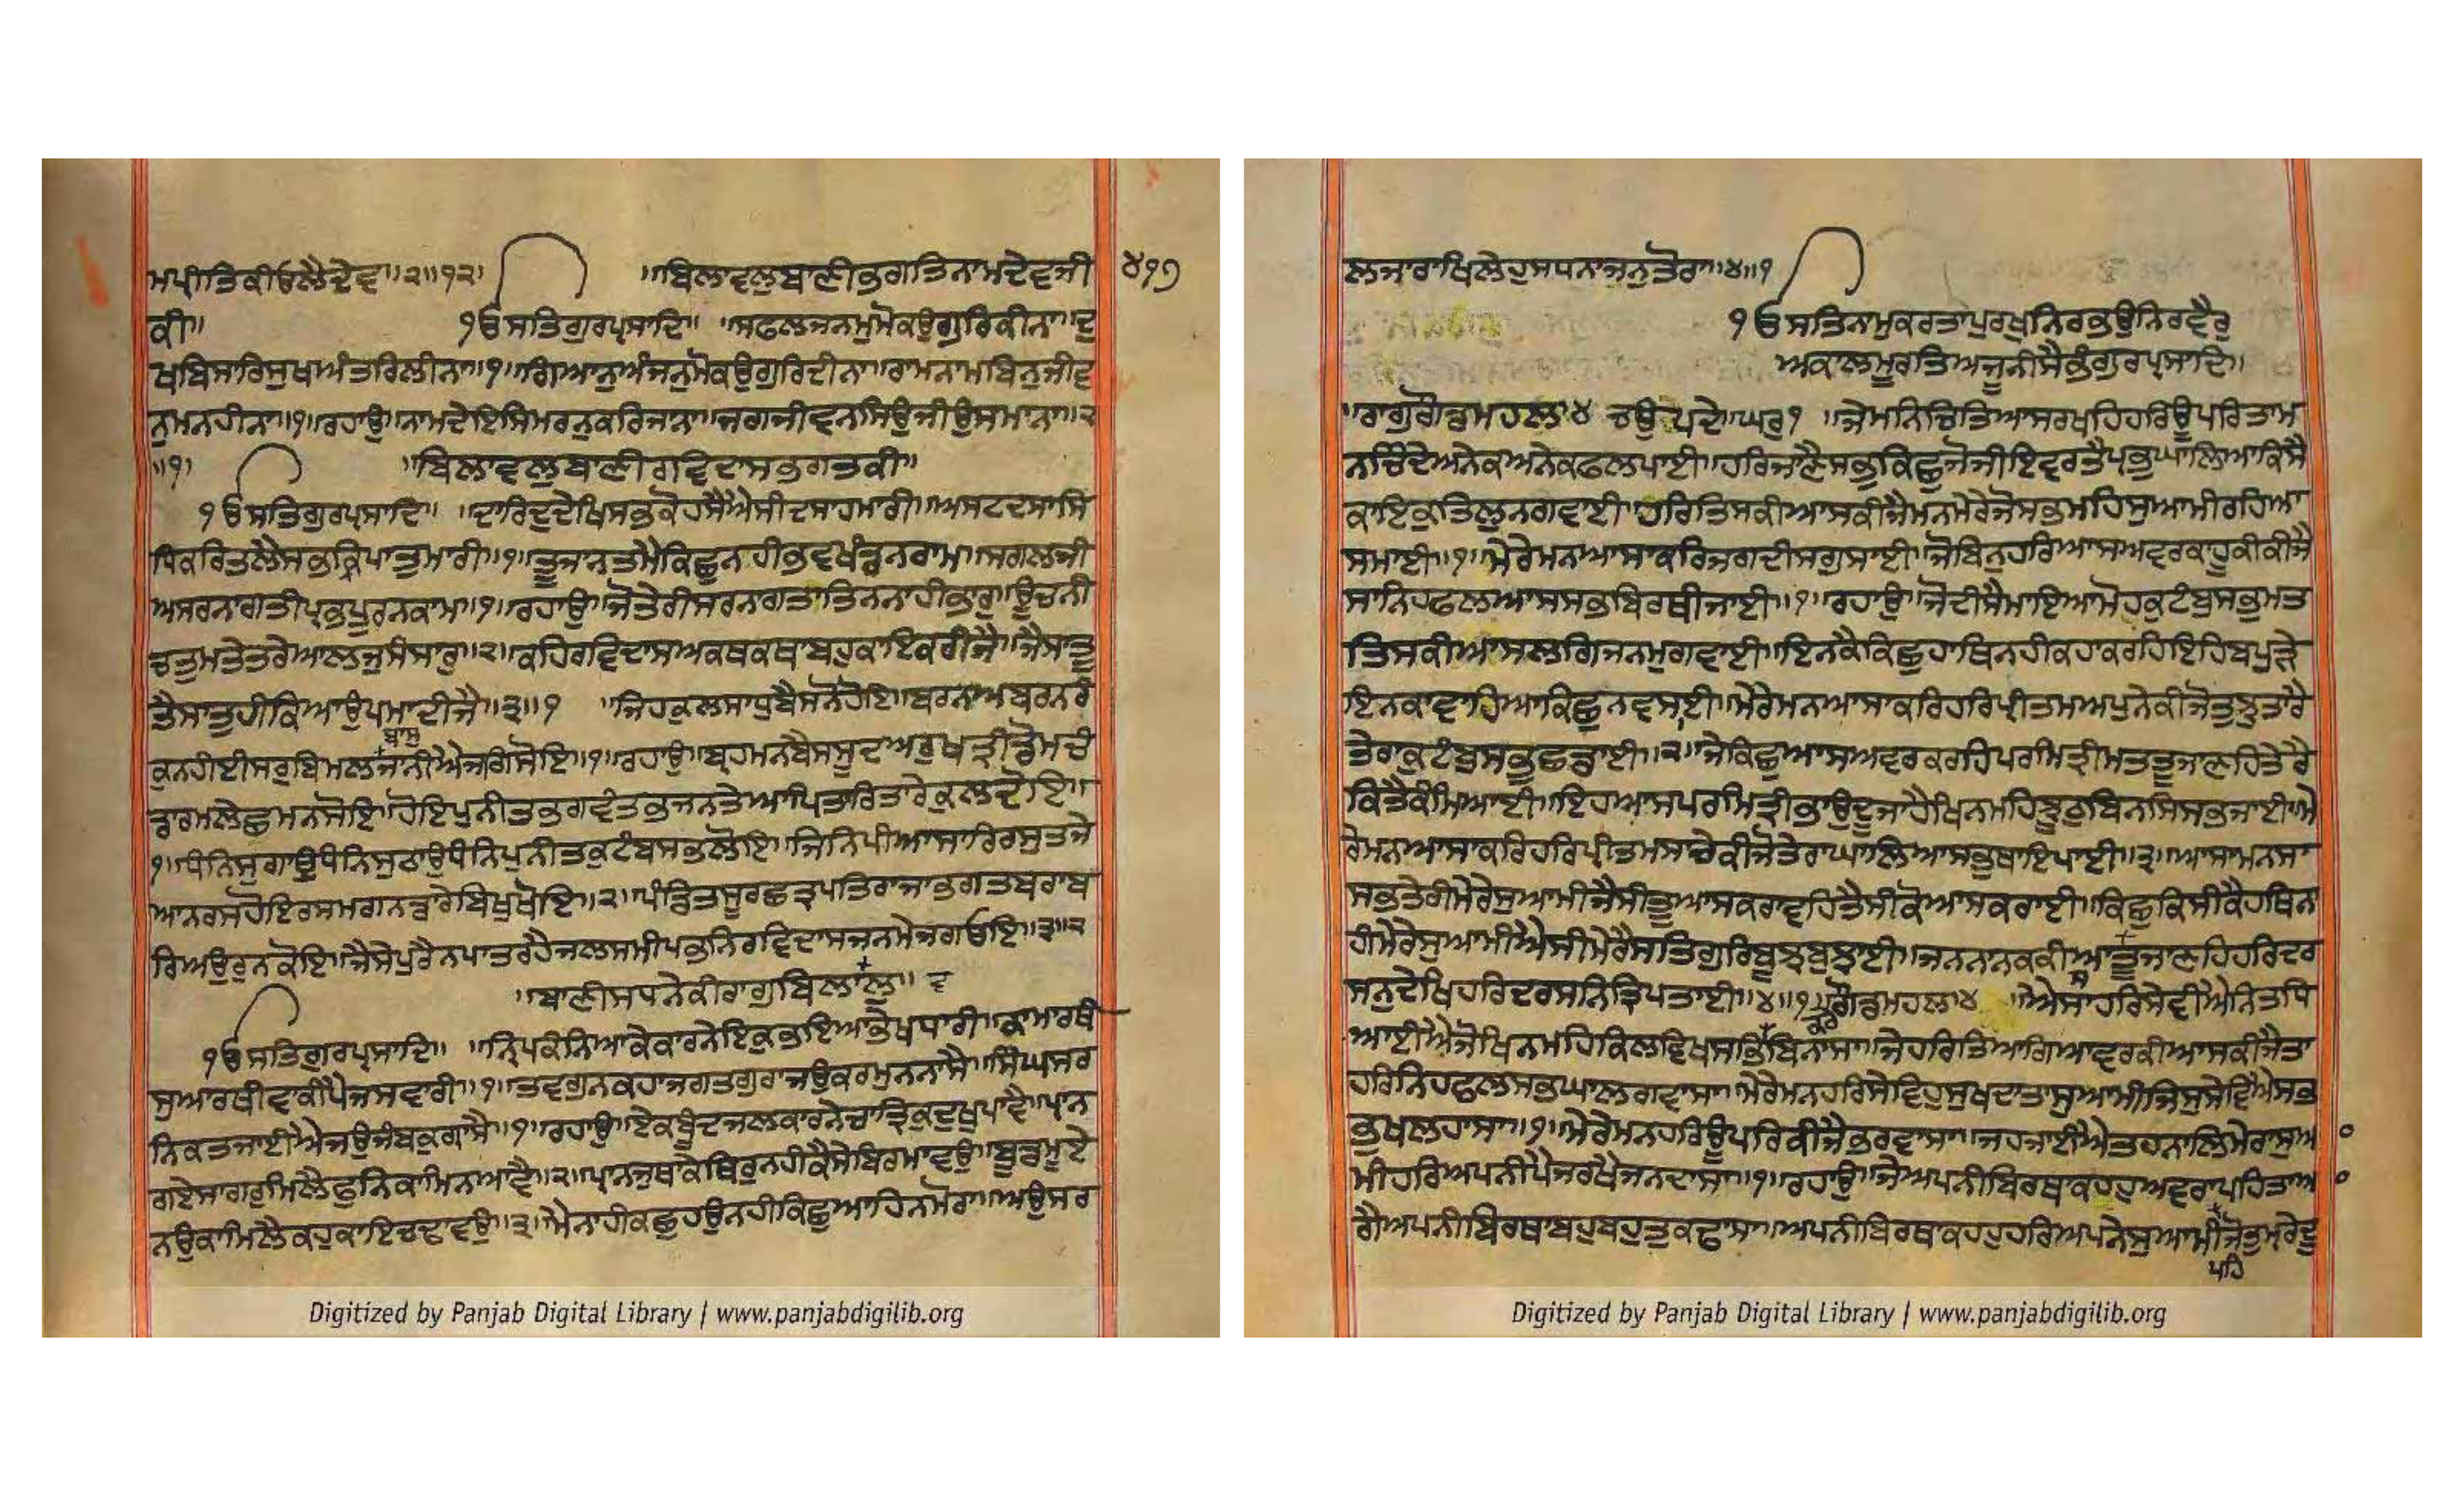 ਮਪ੍ਰੀਤਿਕੀਓਲੈਦੇਵਾ॥੨॥੧੨॥ ॥ਬਿਲਾਵਲੁਬਾਣੀਭਗਤਿਨਾਮਦੇਵਜੀ ੪੧੭
ਕੀ॥ ੴਸਤਿਗੁਰਪ੍ਰਸਾਦਿ॥ ॥ਸਫਲਜਨਮੁਮੋਕਉਗੁਰਿਕੀਨਾ॥ਦੁ
ਖਬਿਸਾਰਿਸੁਖਅੰਤਰਿਲੀਨਾ॥੧॥ਗਿਆਨੁਅੰਜਨੁਮੋਕਉਗੁਰਿਦੀਨਾ॥ਰਾਮਨਾਮਬਿਨੁਜੀਵ
ਨੁਮਨਹੀਨਾ॥੧॥ਰਹਾਉ॥ਨਾਮਦੇਇਸਿਮਰਨੁਕਰਿਜਾਨਾ॥ਜਗਜੀਵਨਸਿਉਜੀਉਸਮਾਨਾ॥੨
॥੧॥ ॥ਬਿਲਾਵਲੁਬਾਣੀਰਵਿਦਾਸਭਗਤਕੀ॥
ੴਸਤਿਗੁਰਪ੍ਰਸਾਦਿ॥ ॥ਦਾਰਿਦੁਦੇਖਿਸਭਕੋਹਸੈਐਸੀਦਸਾਹਮਾਰੀ॥ਅਸਟਦਸਾਸਿ
ਧਿਕਰਿਤਲੈਸਭਕ੍ਰਿਪਾਤੁਮਾਰੀ॥੧॥ਤੂਜਾਨਤਮੈਕਿਛੁਨਹੀਭਵਖੰਡਨਰਾਮ॥ਸਗਲਜੀ
ਅਸਰਨਾਗਤੀਪ੍ਰਭਪੂਰਨਕਾਮ॥੧॥ਰਹਾਉ॥ਜੋਤੇਰੀਸਰਨਾਗਤਾਤਿਨਨਾਹੀਭਾਰੁ॥ਊਚਨੀ
ਚਤੁਮਤੇਤਰੇਆਲਜੁਸੰਸਾਰੁ॥੨॥ਕਹਿਰਵਿਦਾਸਅਕਥਕਥਾਬਹੁਕਾਇਕਰੀਜੈ॥ਜੈਸਾਤੂ
ਤੈਸਾਤੁਹੀਕਿਆਉਪਮਾਦੀਜੈ॥੩॥੧ ॥ਜਿਹਕੁਲਸਾਧੁਬੈਸਨੋਹੋਇ॥ਬਰਨਅਬਰਨਰੰ
ਬਾਸੁ
ਕੁਨਹੀਈਸਰੁਬਿਮਲਜਾਨੀਐਜਗਿਸੋਇ॥੧॥ਰਹਾਉ॥ਬ੍ਰਹਮਨਬੈਸਸੂਦਅਰੁਖਤ੍ਰੀਡੋਮਚੰ
ਡਾਰਮਲੇਛਮਨਸੋਇ॥ਹੋਇਪੁਨੀਤਭਗਵੰਤਭਜਨਤੇਆਪਿਤਾਰਿਤਾਰੇਕੁਲਦੋਇ॥
੧॥ਧੰਨਿਸੁਗਾਉਧੰਨਿਸੁਠਾਉਧੰਨਿਪੁਨੀਤਕੁਟੰਬਸਭਲੋਇ॥ਜਿਨਿਪੀਆਸਾਰਿਰਸੁਤਜੇ
ਆਨਰਸਹੋਇਰਸਮਗਨਡਾਰੇਬਿਖੁਖੋਇ॥੨॥ਪੰਡਿਤਸੂਰਛਤ੍ਰਪਤਿਰਾਜਾਭਗਤਬਰਾਬ
ਰਿਅਉਰੁਨਕੋਇ॥ਜੈਸੇਪੁਰੈਨਪਾਤਰਹੈਜਲਸਮੀਪਭਨਿਰਵਿਦਾਸਜਨਮੇਜਗਓਇ॥੩॥੨
॥ਬਾਣੀਸਧਨੇਕੀਰਾਗੁਬਿਲਾਲੁ॥ ਵ
ੴਸਤਿਗੁਰਪ੍ਰਸਾਦਿ॥ ॥ਨ੍ਰਿਪਕੰਨਿਆਕੇਕਾਰਨੇਇਕੁਭਇਆਭੇਖਧਾਰੀ॥ਕਾਮਾਰਥੀ
ਸੁਆਰਥੀਵਾਕੀਪੈਜਸਵਾਰੀ॥੧॥ਤਵਗੁਨਕਹਾਜਗਤਗੁਰਾਜਉਕਰਮੁਨਨਾਸੈ॥ਸਿੰਘਸਰ
ਨਿਕਤਜਾਈਐਜਉਜੰਬਕੁਗ੍ਰਾਸੈ॥੧॥ਰਹਾਉ॥ਏਕਬੂੰਦਜਲਕਾਰਨੇਚਾਤ੍ਰਿਕੁਦੁਖੁਪਾਵੈ॥ਪ੍ਰਾਨ
ਗਏਸਾਗਰੁਮਿਲੈਫੁਨਿਕਾਮਿਨਆਵੈ॥੨॥ਪ੍ਰਾਨਜੁਥਾਕੇਥਿਰੁਨਹੀਕੈਸੇਬਿਰਮਾਵਉ॥ਬੂਡਮੂਏ
ਨਉਕਾਮਿਲੈਕਹੁਕਾਇਚਢਾਵਉ॥੩॥ਮੈਨਾਹੀਕਛੁਹਉਨਹੀਕਿਛੁਆਹਿਨਮੋਰਾ॥ਅਉਸਰ
Digitized by Panjab Digital Library | www.panjabdigilib.org
ਲਜਾਰਾਖਿਲੇਹੁਸਧਨਾਜਨੁਤੋਰਾ॥੪॥੧
ੴਸਤਿਨਾਮੁਕਰਤਾਪੁਰਖੁਨਿਰਭਉਨਿਰਵੈਰੁ
ਅਕਾਲਮੂਰਤਿਅਜੂਨੀਸੈਭੰਗੁਰਪ੍ਰਸਾਦਿ॥
॥ਰਾਗੁਗੋਂਡਮਹਲਾ੪ ਚਉਪਦੇ॥ਘਰੁ੧ ॥ਜੇਮਨਿਚਿਤਿਆਸਰਖਹਿਹਰਿਊਪਰਿਤਾਮ
ਨਚਿੰਦੇਅਨੇਕਅਨੇਕਫਲਪਾਈ॥ਹਰਿਜਾਣੈਸਭੁਕਿਛੁਜੋਜੀਇਵਰਤੈਪ੍ਰਭੁਘਾਲਿਆਕਿਸੈ
ਕਾਇਕੁਤਿਲੁਨਗਵਾਈ॥ਹਰਿਤਿਸਕੀਆਸਕੀਜੈਮਨਮੇਰੇਜੋਸਭਮਹਿਸੁਆਮੀਰਹਿਆ
ਸਮਾਈ॥੧॥ਮੇਰੇਮਨਆਸਾਕਰਿਜਗਦੀਸਗੁਸਾਈ॥ਜੋਬਿਨੁਹਰਿਆਸਅਵਰਕਾਹੂਕੀਕੀਜੈ
ਸਾਨਿਹਫਲਆਸਸਭਬਿਰਥੀਜਾਈ॥੧॥ਰਹਾਉ॥ਜੋਦੀਸੈਮਾਇਆਮੋਹਕੁਟੰਬੁਸਭੁਮਤ
ਤਿਸਕੀਆਸਲਗਿਜਨਮੁਗਵਾਈ॥ਇਨਕੈਕਿਛੁਹਾਥਿਨਹੀਕਹਾਕਰਹਿਇਹਿਬਪੁੜੇ
ਇਨਕਾਵਾਹਿਆਕਿਛੁਨਵਸਾਈ॥ਮੇਰੇਮਨਆਸਾਕਰਿਹਰਿਪ੍ਰੀਤਮਅਪੁਨੇਕੀਜੋਤੁਝੁਤਾਰੈ
ਤੇਰਾਕੁਟੰਬੁਸਭੁਛਡਾਈ॥੨॥ਜੇਕਿਛੁਆਸਅਵਰਕਰਹਿਪਰਮਿਤ੍ਰੀਮਤਤੂਜਾਣਹਿਤੇਰੈ
ਕਿਤੈਕੰਮਿਆਈ॥ਇਹਆਸਪਰਮਿਤ੍ਰੀਭਾਉਦੂਜਾਹੈਖਿਨਮਹਿਝੂਠੁਬਿਨਸਿਸਭਜਾਈ॥ਮੇ
ਰੇਮਨਆਸਾਕਰਿਹਰਿਪ੍ਰੀਤਮਸਾਚੇਕੀਜੋਤੇਰਾਘਾਲਿਆਸਭੁਥਾਇਪਾਈ॥੩॥ਆਸਾਮਨਸਾ
ਸਭਤੇਰੀਮੇਰੇਸੁਆਮੀਜੈਸੀਤੂਆਸਕਰਾਵਹਿਤੈਸੀਕੋਆਸਕਰਾਈ॥ਕਿਛੁਕਿਸੀਕੈਹਥਿਨਾ
ਹੀਮੇਰੇਸੁਆਮੀਐਸੀਮੇਰੈਸਤਿਗੁਰਿਬੂਝਬੁਝਾਈ॥ਜਨਨਾਨਕਕੀਆਤੂਜਾਣਹਿਹਰਿਦਰ
ਸ
ਸਨੁਦੇਖਿਹਰਿਦਰਸਨਿਤ੍ਰਿਪਤਾਈ॥੪॥੧॥ਗੋਂਡਮਹਲਾ੪ ॥ਐਸਾਹਰਿਸੇਵੀਐਨਿਤਧਿ
ਆਈਐਜੋਖਿਨਮਹਿਕਿਲਵਿਖਸਭਿਬਿਨਾਸਾ॥ਜੇਹਰਿਤਿਆਗਿਆਵਰਕੀਆਸਕੀਜੈਤਾ
ਹਰਿਨਿਹਫਲਸਭਘਾਲਗਵਾਸਾ॥ਮੇਰੇਮਨਹਰਿਸੇਵਿਹੁਸੁਖਦਾਤਾਸੁਆਮੀਜਿਸੁਸੇਵਿਐਸਭ
ਭੁਖਲਹਾਸਾ॥੧॥ਮੇਰੇਮਨਹਰਿਊਪਰਿਕੀਜੈਭਰਵਾਸਾ॥ਜਹਜਾਈਐਤਹਨਾਲਿਮੇਰਾਸੁਆ
ਮੀਹਰਿਅਪਨੀਪੈਜਰਖੈਜਨਦਾਸਾ॥੧॥ਰਹਾਉ॥ਜੇਅਪਨੀਬਿਰਥਾਕਹਹੁਅਵਰਾਪਹਿਤਾਆ
ਗੈਅਪਨੀਬਿਰਥਾਬਹੁਬਹੁਤੁਕਢਾਸਾ॥ਅਪਨੀਬਿਰਥਾਕਹਹੁਹਰਿਅਪਨੇਸੁਆਮੀਜੋਤੁਮ੍ਰੇਦੂ
ਪਹਿ
Digitized by Panjab Digital Library | www.panjabdigilib.org